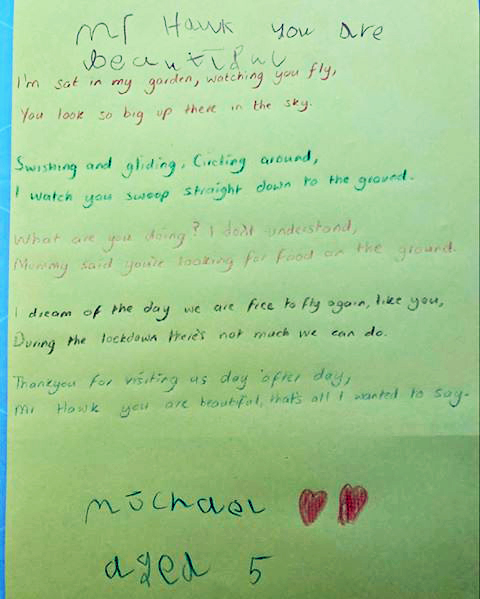 Mr Hawk you are
beautiful
I'm sat in my garden, watching you fly,
You look so big up there in the sky.
Swishing and gliding, Circling around,
I watch you swoop straight down to the ground.
What are you doing? I don't understand,
Mummy said you're looking for food on the ground.
I dream of the day we are free to fly again, like you,
During the lockdown there's not much we can do.
Thankyou for visiting us day after day,
Mr Hawk you are beautiful, that's all I wanted to say.
Michael
aged 5